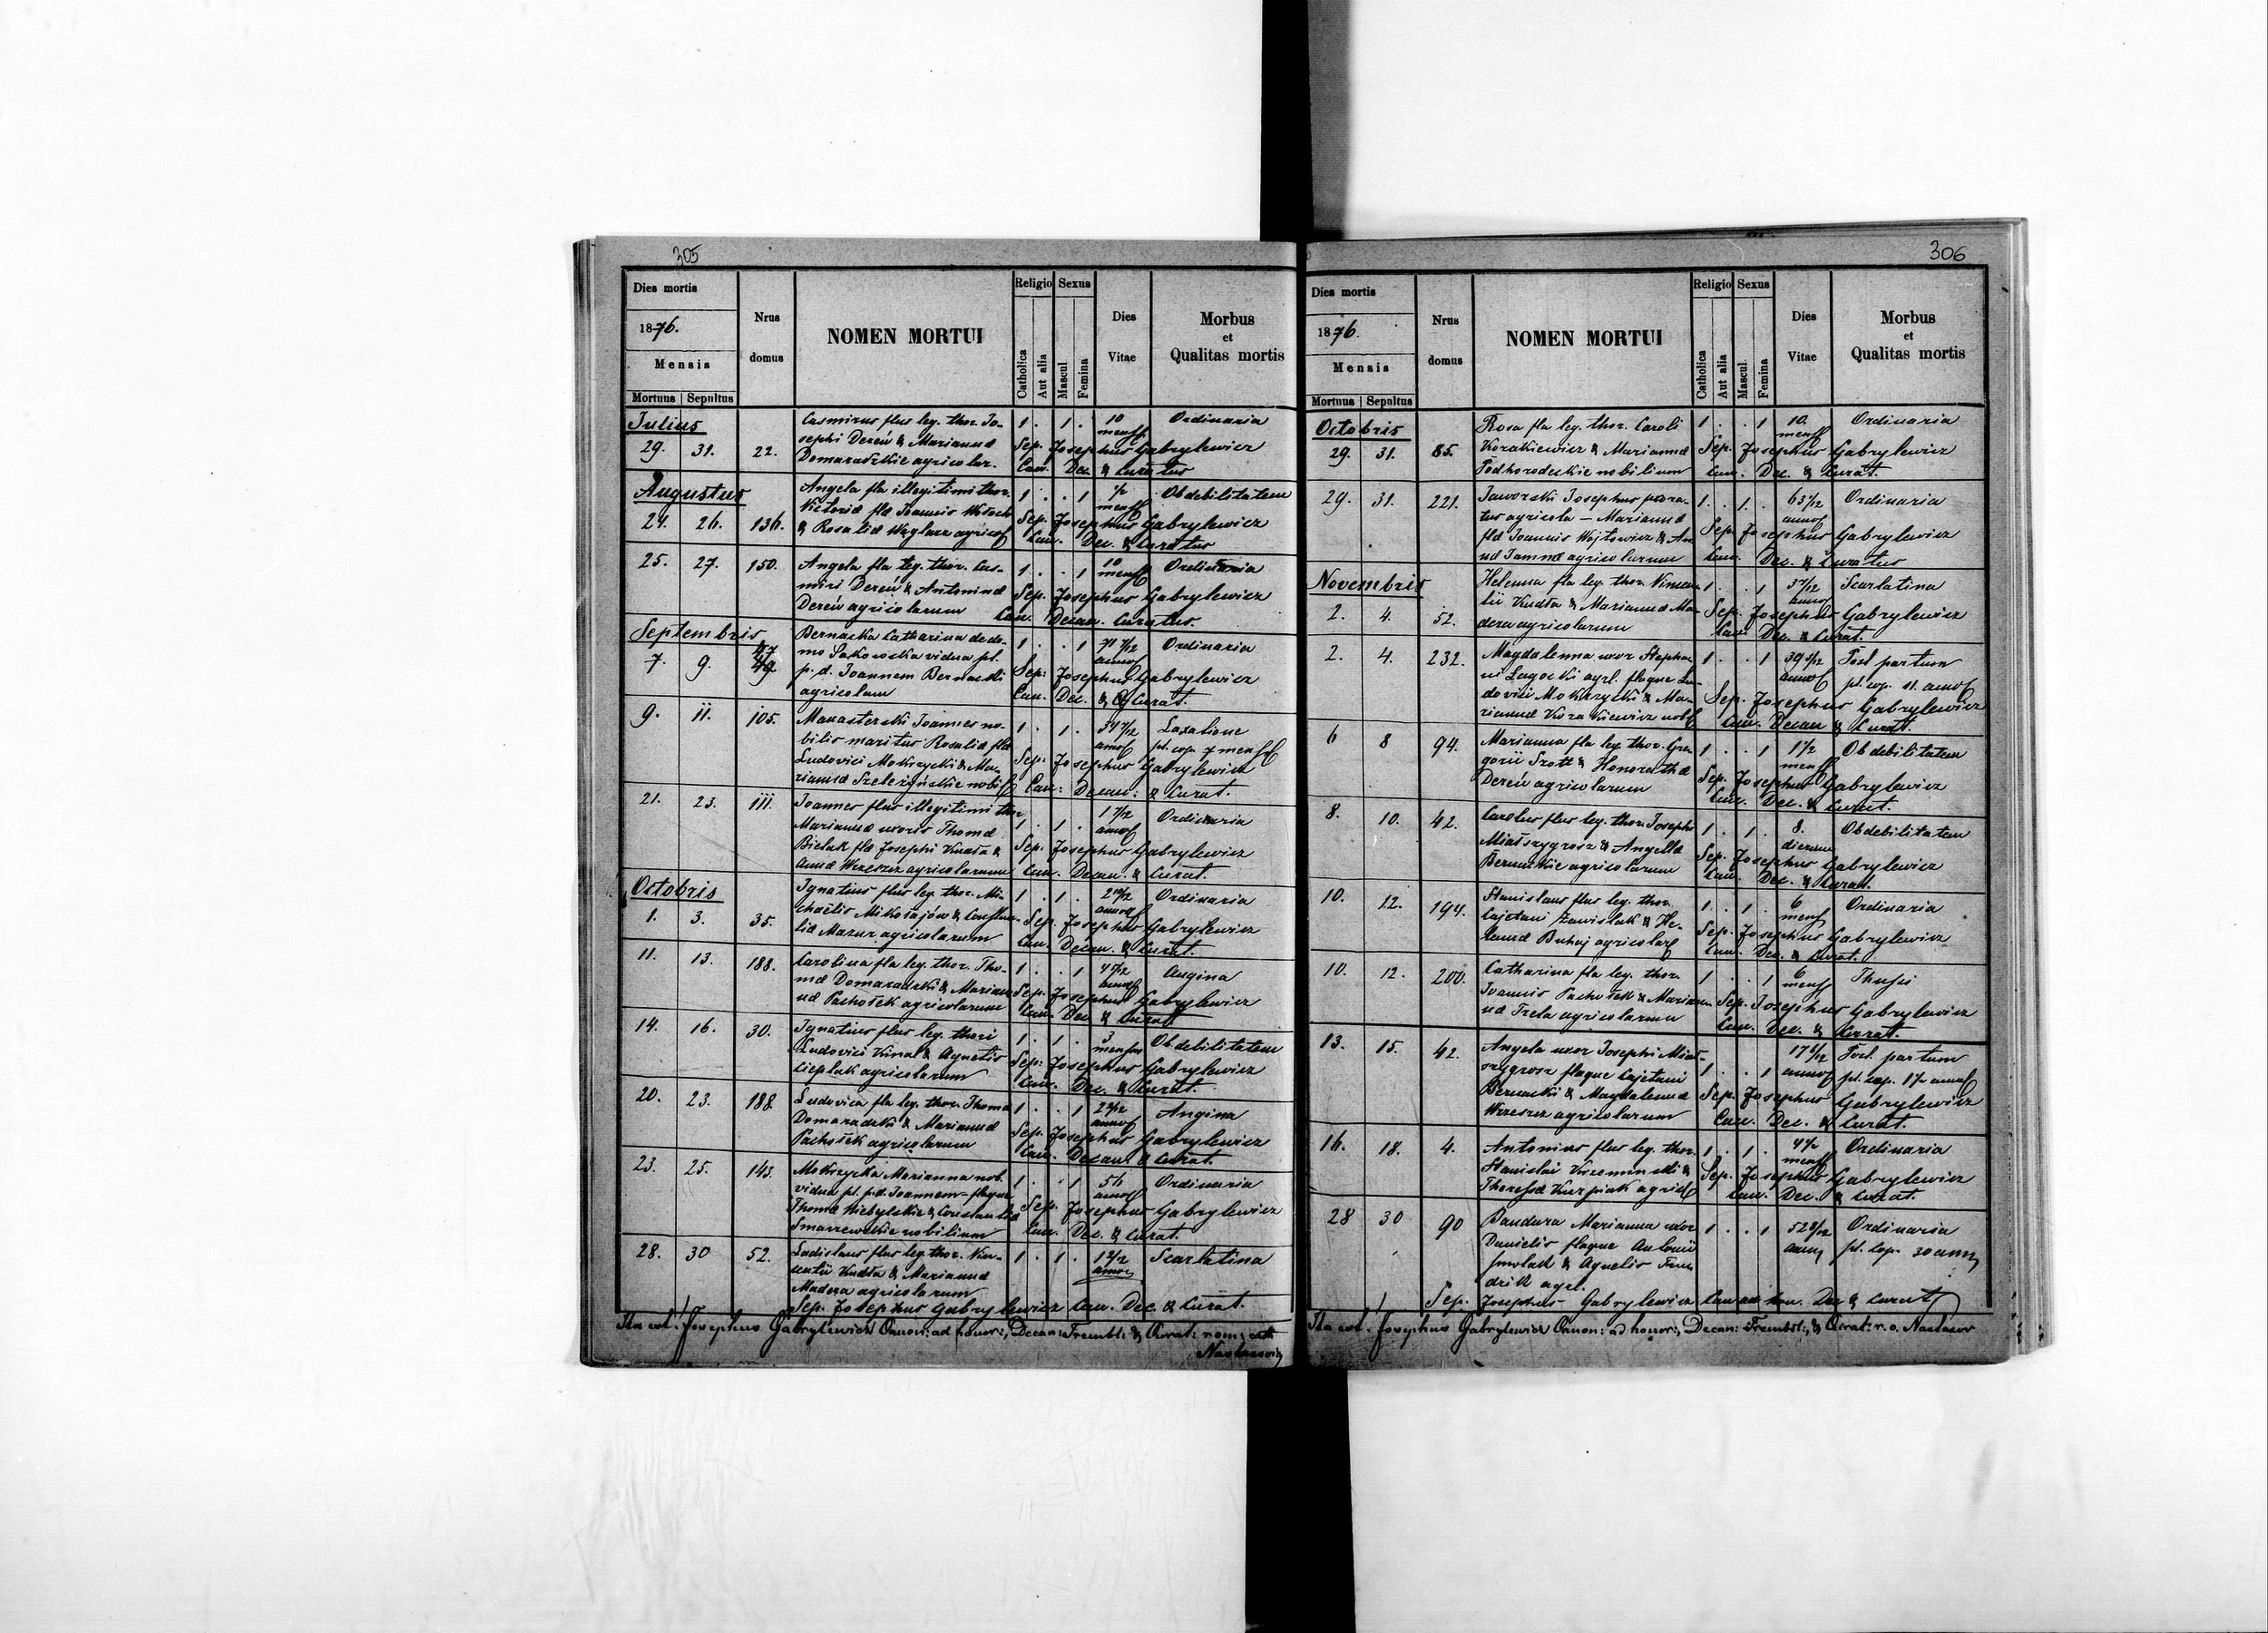 305
Dies mortis
1876.
Mensis
Mortuus | Sepultus
Nrus
domus
NOMEN MORTUI
Religio
Catholica
Aut alia
Sexus
Mascul.
Femina
Dies
Vitae
Morbus
et
Qualitas mortis
Julius
29. 31. 22.
Casmirus flus leg. thor. Jo-
sephi Dereń & Mariannæ
Domaradzkie agricolar.
1 . 1 . 10 mens Ordinaria
Sep. Josephus Gabrylewicz
Can. Dec. & Curatus
Augustus
24. 26. 136.
Angela fla illegitimi thor.
Victoriæ flæ Joannis Włoch
& Rosaliæ Węglarz agricol
1 . . 1 ½ mens Ob debilitatem
Sep. Josephus Gabrylewicz
Can. Dec. & Curatus
25. 27. 150.
Angela fla leg. thor. Cas-
miri Dereń & Antoninæ
Dereń agricolarum
1 . . 1 10 mens Ordinaria
Sep. Josephus Gabrylewicz
Can. Decan. Curatus.
Septembris
7. 9. 47
Bernacka Catharina de do-
mo Sakowska vidua pt.
p. d. Joannem Bernacki
agricolam
1 . . 1 annos Ordinaria
Sep: Josephus Gabrylewicz
Can. Dec. & Curat.
9. 11. 105.
Manasterski Joannes no-
bilis maritus Rosaliæ flæ
Ludovici Mokrzycki & Ma-
riannæ Szeleżyńskie nobil
1 . 1 . annos Laxatione
pt. cop. 7 mens
Sep: Josephus Gabrylewicz
Can: Decan: & Curat.
21. 23. 111.
Joannes flus illegitimi thor
Mariannæ uxoris Thomæ
Bielak flæ Josephi Kudła &
Annæ Wrzeszcz agricolarum
1 . 1 . 1 7/12 annos Ordinaria
Sep. Josephus Gabrylewicz
Can. Decan. & Curat.
Octobris
1. 3. 35.
Ignatius flus leg. thor. Mi-
chaëlis Mikołajów & Constan-
tiæ Mazur agricolarum
1 . 1 . annos Ordinaria
Sep. Josephus Gabrylewicz
Can. Decan. & Curat.
11. 13. 188.
Carolina fla leg. thor. Tho-
mæ Domaradzki & Marian-
næ Pachołek agricolarum
1 . . 1 annos Angina
Sep. Josephus Gabrylewicz
Can. Dec. & Curat
14. 16. 30.
Ignatius flus leg. thori
Ludovici Kinal & Agnetis
Cieplak agricolarum
1 . 1 . 3 menses Ob debilitatem
Sep: Josephus Gabrylewicz
Can. Dec. & Curat.
20. 23. 188.
Ludovica fla leg. thor. Thomæ
Domaradzki & Mariannæ
Pachołek agricolarum
1 . . 1 annos Angina
Sep. Josephus Gabrylewicz
Can. Decan & Curat.
23. 25. 143.
Mokrzycka Marianna nob.
vidua pt. p.d. Joannem - flaque
Thomæ Niebylskie & Constantiæ
Smarzewskie nobilium
1 . . 1 annos Ordinaria
Sep. Josephus Gabrylewicz
Can. Dec. & Curat.
28. 30 52.
Ladislaus flus leg. thor. Vin-
centii Kudła & Mariannæ
Madera agricolarum
1 . 1 . annos Scarlatina
Sep. Josephus Gabrylewicz Can. Dec. & Curat.
Ita est. Josephus Gabrylewicz Canon: ad honor:, Decan: Trembl: & Curat:
306
Dies mortis
1876.
Mensis
Mortuus | Sepultus
Nrus
domus
NOMEN MORTUI
Religio
Catholica
Aut alia
Sexus
Mascul.
Femina
Dies
Vitae
Morbus
et
Qualitas mortis
Octobris
29. 31. 85.
Rosa fla leg. thor. Caroli
Koratkiewicz & Mariannæ
Podhorodeckie nobilium
1 . . 1 10. mens Ordinaria
Sep. Josephus Gabrylewicz
Can. Dec. & Curat.
29. 31. 221.
Jaworski Josephus
agricola — Mariannæ
flæ Joannis Wojtowicz & An-
næ Jamna agricolarum
1 . 1 . annos Ordinaria
Sep. Josephus Gabrylewicz
Can. Dec. & Curatus
Novembris
2. 4. 52.
Helenna fla leg. thor. Vincen-
tii Kudła & Mariannæ Ma-
dera agricolarum
1 . . 1 3 7/12 annos Scarlatina
Sep. Josephus Gabrylewicz
Can. Dec. & Curat.
2. 4. 232.
Magdalenna uxor Stepha-
ni Ługocki agrl. flaque Lu-
dovici Mokrzycki & Ma-
riannæ Korakiewicz nobil
1 . . 1 annos Post partum
pt. cop. 11. annos
Sep. Josephus Gabrylewicz
Can. Decan & Curat.
6 8 94.
Marianna fla leg. thor. Gre-
gorii Szott & Honorathæ
Dereń agricolarum
1 . . 1 1½ mens Ob debilitatem
Sep. Josephus Gabrylewicz
Can. Dec. & Curat.
8. 10. 42.
Carolus flus leg. thor. Josephi
Miałszygrosz & Angellæ
Bernackie agricolarum
1 . 1 . 8. dierum Ob debilitatem
Sep. Josephus Gabrylewicz
Can. Dec. & Curat.
10. 12. 194.
Stanislaus flus leg. thor.
Cajetani Zawiślak & He-
lennæ Buhaj agricolar
1 . 1 . 6 mens Ordinaria
Sep. Josephus Gabrylewicz
Can. Dec. & Curat.
10. 12. 200.
Catharina fla leg. thor.
Joannis Pachołek & Marian-
næ Trela agricolarum
1 . . 1 6 mens Thussi
Sep. Josephus Gabrylewicz
Can. Dec. & Curat.
13. 15. 42.
Angela uxor Josephi Miał-
szygrosz flaque Cajetani
Bernacki & Magdalennæ
Wrzeszcz agricolarum
1 . . 1 annos Post. partum
pt. cop. 1½ annos
Sep. Josephus Gabrylewicz
Can. Dec. & Curat.
16. 18. 4.
Antonius flus leg. thor.
Stanislai Krzeminski &
Theressæ Kurpiak agricol
1 . 1 . 4½ mens Ordinaria
Sep. Josephus Gabrylewicz
Can. Dec. & Curat.
28 30 90
Bandura Marianna uxor
Danielis flaque Antonii
Smolak & Agnetis Fran-
drik agrl.
1 . . 1 annos Ordinaria
pt. Cop. 30 annos
Sep. Josephus Gabrylewicz Can ad hon. Dec & Curat
Ita est. Josephus Gabrylewicz Canon: ad honor:, Decan: Trembl:, & Curat: